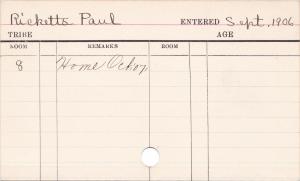 Ricketts Paul ENTERED Sept. 1906
TRIBE AGE
ROOM REMARKS ROOM
8 Home